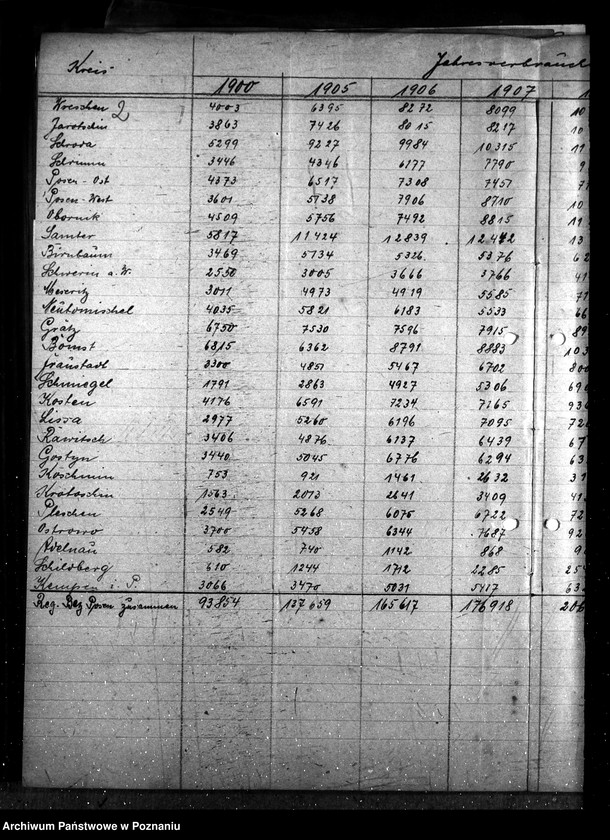 Kreis Jahresverbrauch
1900 1905 1906 1907 1
Wreschen 2 4003 6395 8272 8099 10
Jarotschin 3863 7426 8015 8217 10
Schroda 5299 9227 9984 10315 11
Schrimm 3446 4346 6177 7790 9
Posen-Ost 4373 6517 7308 7457 7
Posen-West 3601 5738 7906 8710 10
Obornik 4509 5756 7492 8815 11
Samter 5817 11424 12839 12472 13
Birnbaum 3469 5734 5326 5376 62
Schwerin a. W. 2550 3005 3666 3766 41
Meseritz 3011 4973 4919 5585 71
Neutomischel 4035 5821 6183 5533 66
Grätz 6750 7530 7596 7915 89
Bomst 6815 6362 8791 8883 103
Fraustadt 3300 4857 5467 6702 800
Schmiegel 1791 2863 4927 5306 690
Kosten 4176 6591 7234 7165 936
Lissa 2977 5260 6196 7095 72
Rawitsch 3406 4876 6137 6439 67
Gostyn 3440 5045 6776 6294 63
Koschmin 753 921 1461 2632 31
Krotoschin 1563 2013 2641 3409 41
Pleschen 2549 5268 6075 6722 72
Ostrowo 3700 5458 6344 7687 92
Adelnau 582 740 1142 868 9
Schildberg 610 1244 1712 2285 254
Kempen i. P. 3066 3470 5031 5417 632
Reg. Bez Posen zusammen 93854 137659 165617 176918 206
Archiwum Państwowe w Poznaniu